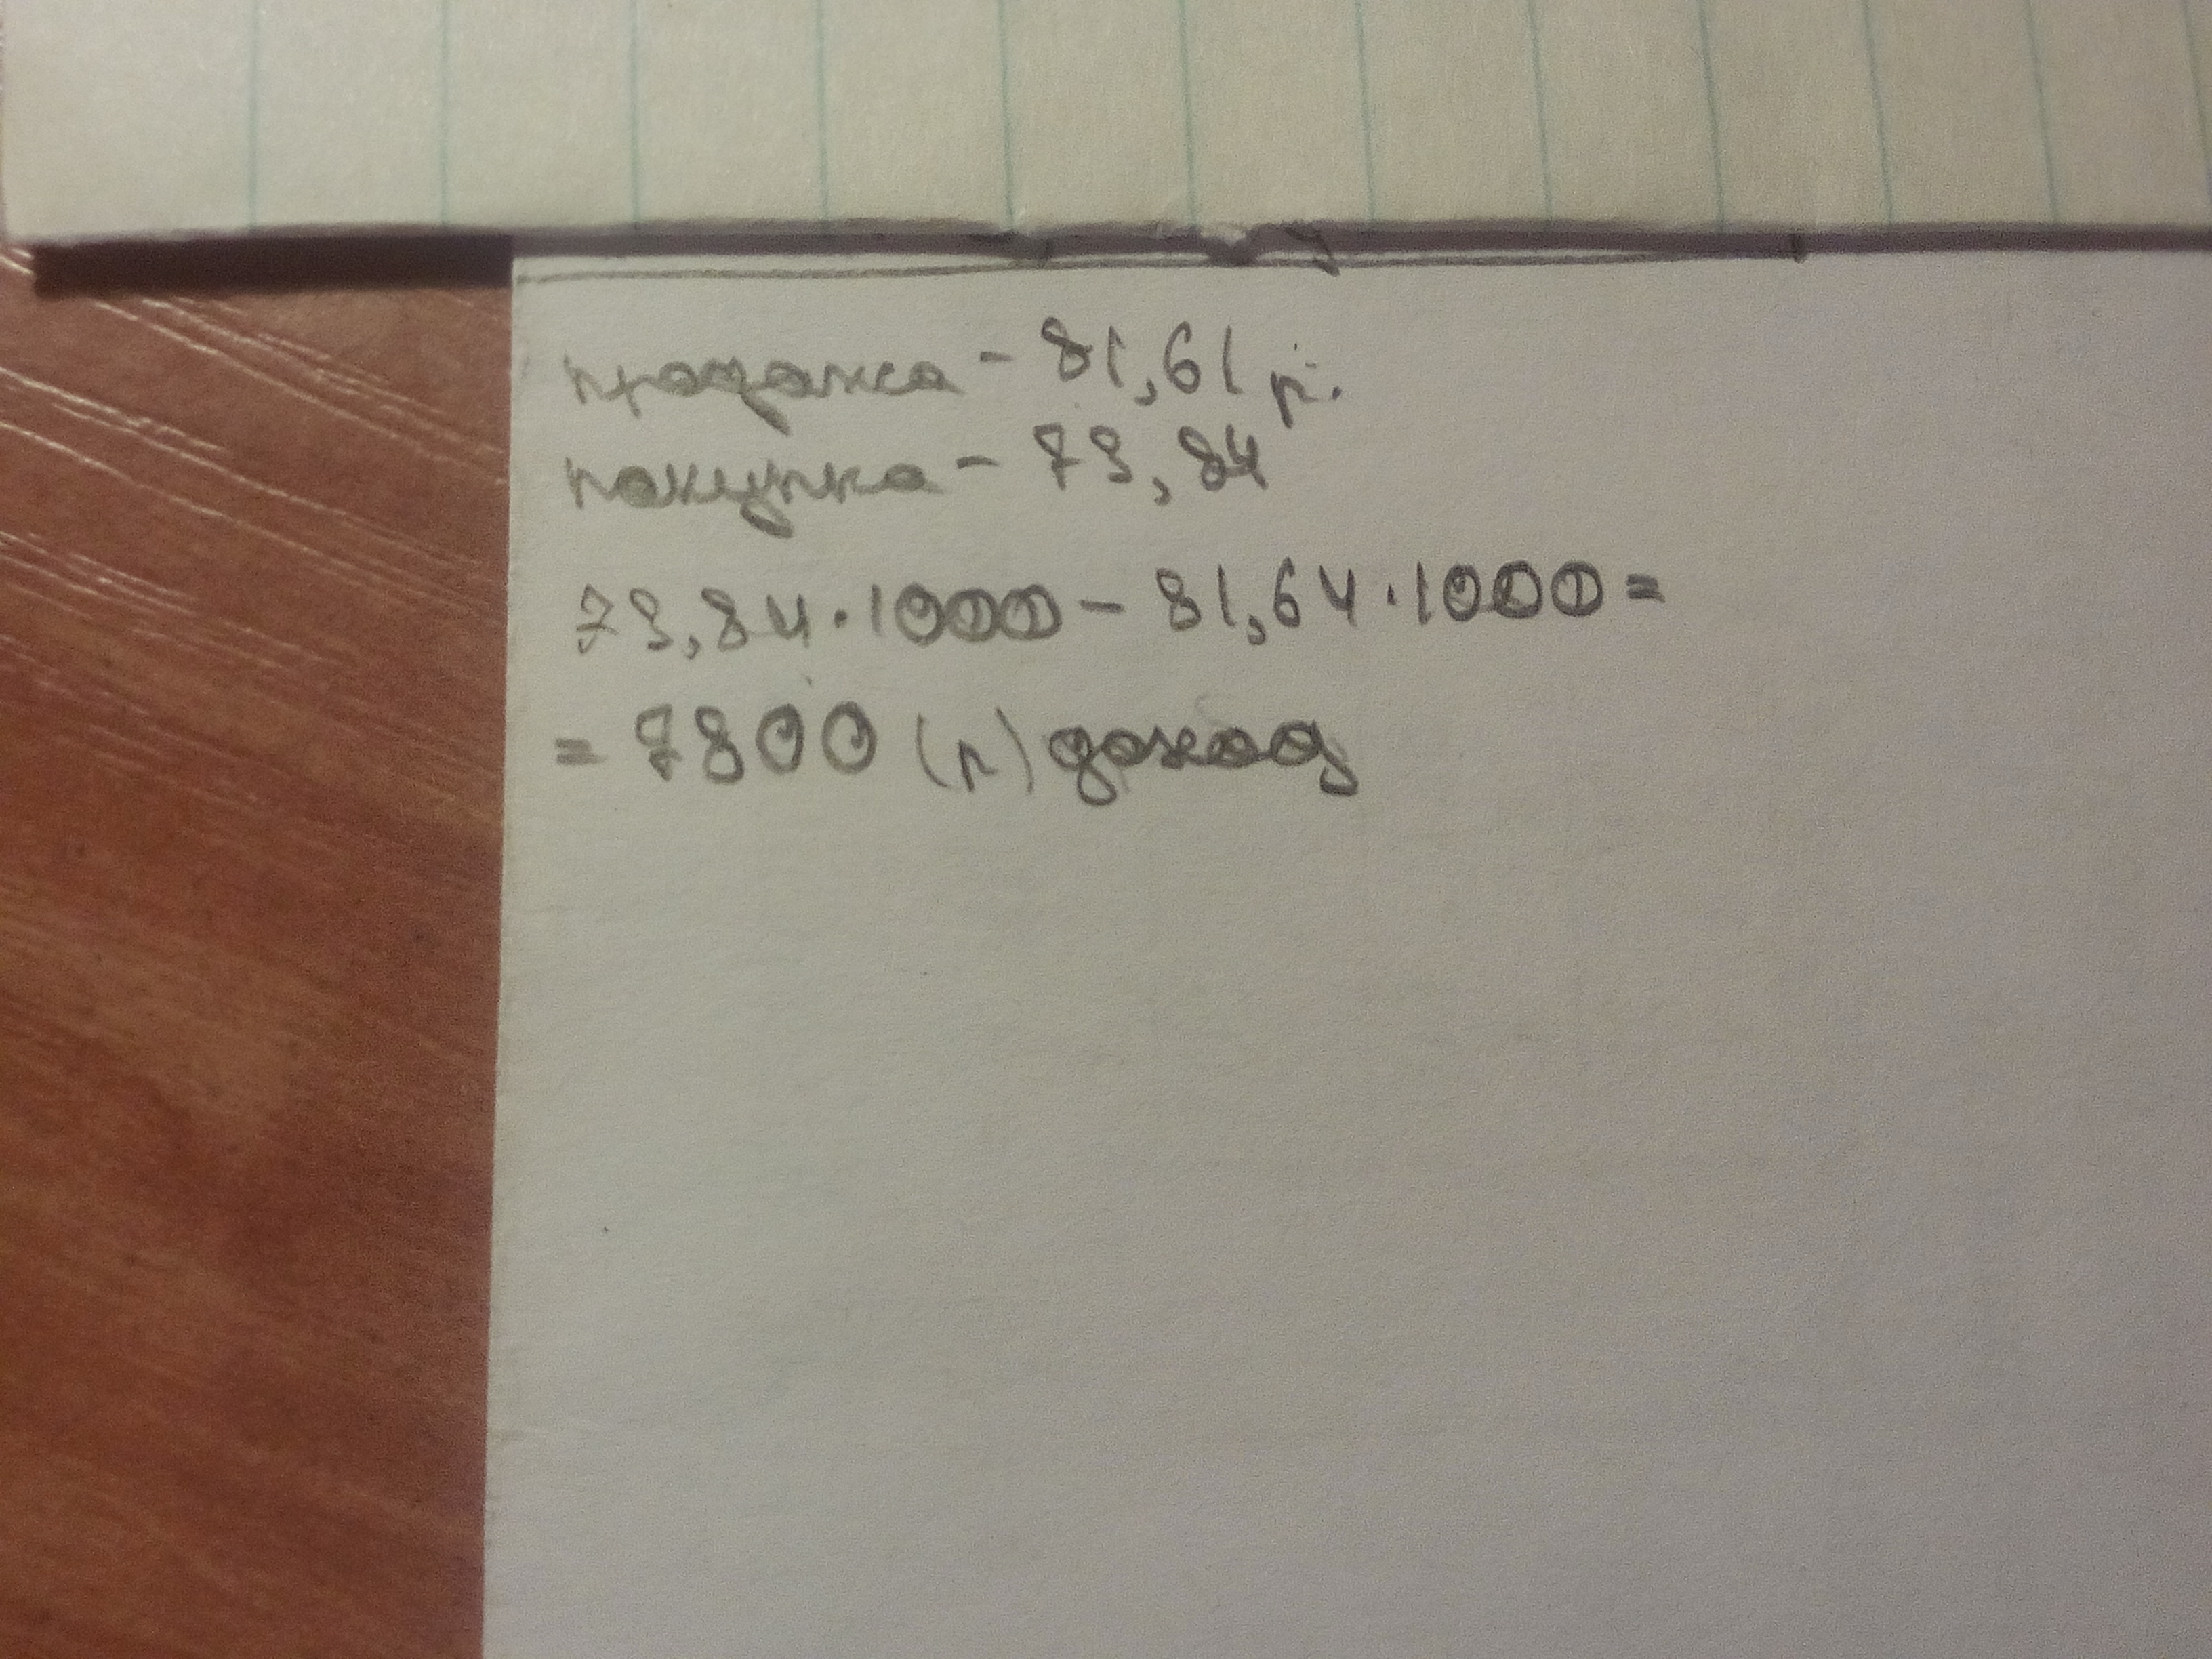 продажа - 81,61 р.
покупка - 73,84
73,84·1000 - 81,64·1000 =
= 7800 (р) доход